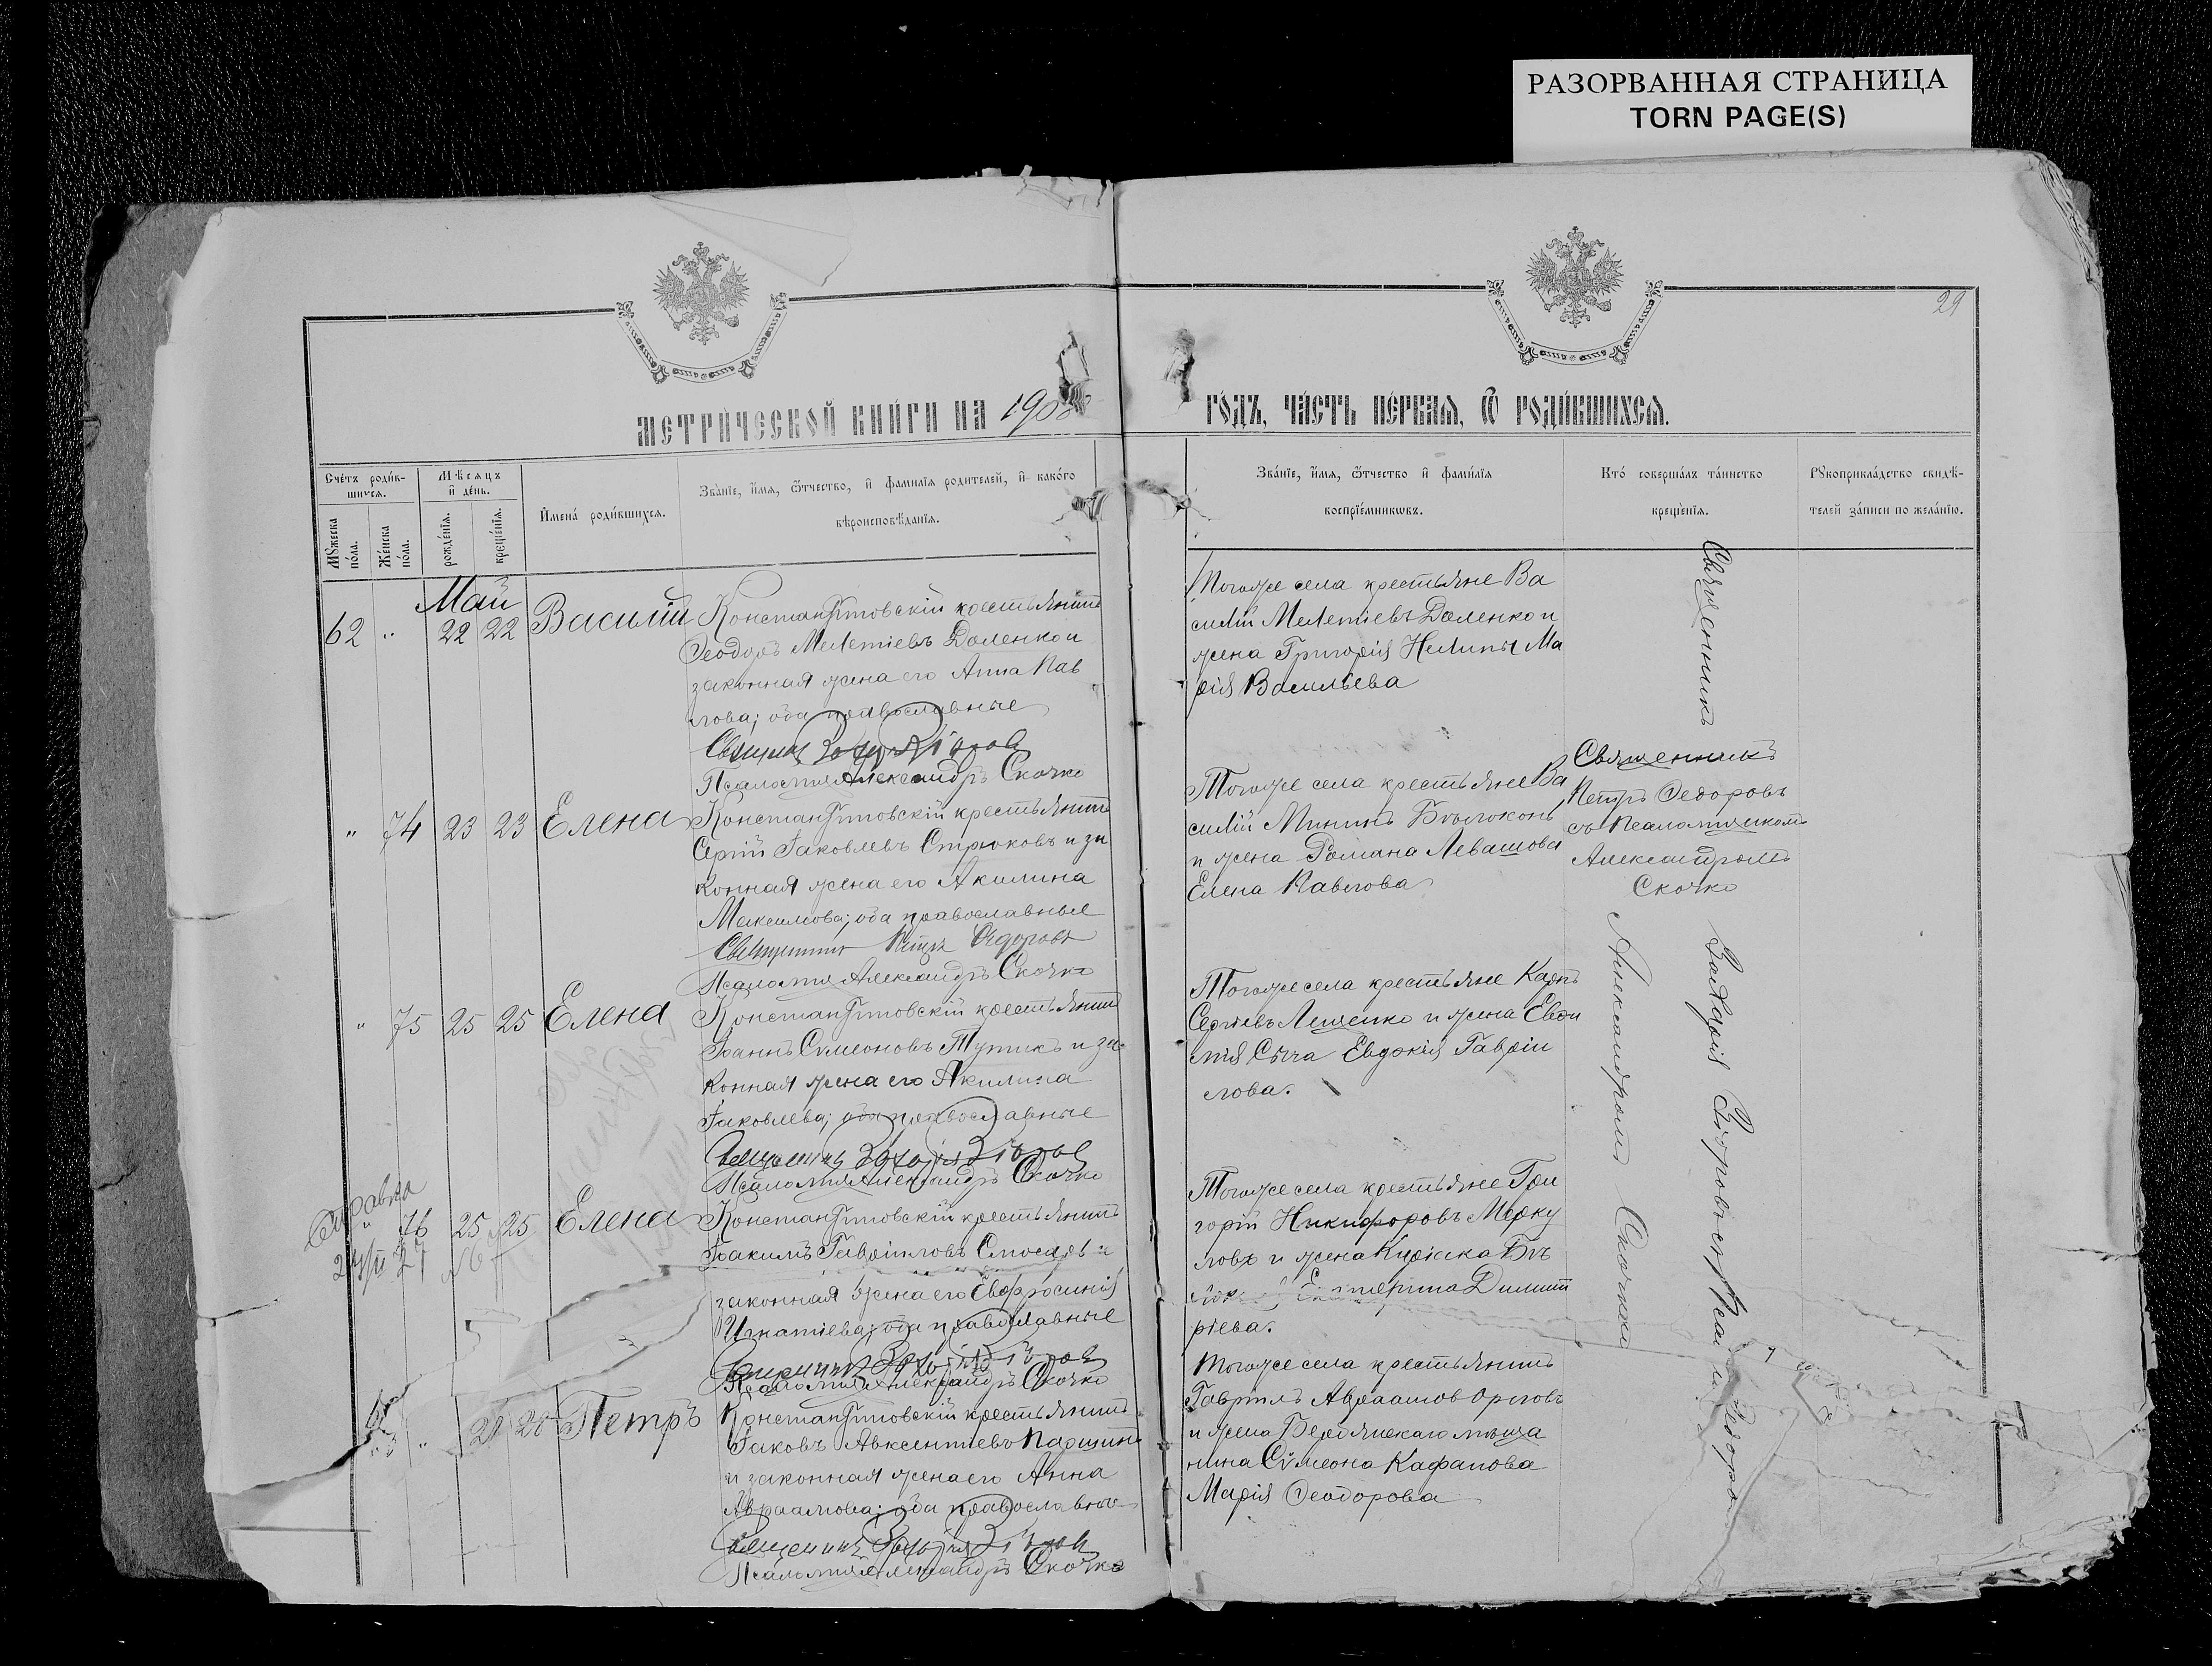 РАЗОРВАННАЯ СТРАНИЦА
TORN PAGE(S)
29
МЕТРИ́ЧЕСКОЙ КНИ́ГИ НА 190
ГО́ДЪ, ЧА́СТЬ ПЕ́РВАЯ, Ѿ РОДИ́ВШИХСЯ.
Сче́тъ роди́в-
шихся.
Мѣсяцъ
и҆ де́нь.
Мꙋ́жеска
по́ла.
Же́нска
по́ла.
рожде́нїя.
креще́нїя.
И҆мена̀ роди́вшихся.
Зва́нїе, и҆́мя, ѻ҆́тчество, и҆ фами́лїя родителей, и҆ како́го
вѣроисповѣ́данїя.
Зва́нїе, и҆́мя, ѻ҆́тчество и҆ фами́лїя
воспрїе́мниковъ.
Кто̀ соверша́лъ та́инство
креще́нїя.
Рꙋкоприкла́дство свидѣ́-
телей за́писи по жела́нїю.
Май
62 " 22 22 Василій
Константиновскій крестьянинъ
Ѳеодоръ Мелетіевъ Доленко и
законная жена его Анна Пав
лова; оба православные
Псаломщ Александръ Скочко
Тогоже села крестьяне Ва
силій Мелетіевъ Доленко и
жена Григорія Нелипы Ма
рія Васильева
" 74 23 23 Елена
Константиновскій крестьянинъ
Сергій Іаковлевъ Стрюковъ и за
конная жена его Акилина
Максимова; оба православные
Священникъ Петръ Ѳедоровъ
Псаломщ Александръ Скочко
Тогоже села крестьяне Ва
силій Мининъ Бѣлоконь
и жена Романа Левашова
Елена Павлова
Священникъ
Петръ Ѳедоровъ
съ псаломщикомъ
Александромъ
Скочко
" 75 25 25 Елена
Константиновскій крестьянинъ
Іоаннъ Симеоновъ Тупикъ и за-
конная жена его Акилина
Іаковлева; оба православные
Псаломщ Александръ Скочко
Тогоже села крестьяне Карпъ
Сергіевъ Лещенко и жена Евѳи
мія Сыча Евдокія Гавріи
лова.
Справка
" 76 25 25 Елена
Константиновскій крестьянинъ
Іоакимъ Гавріиловъ и
законная жена его Евфросинія
Игнатіева; оба православные
Псаломщ Александръ Скочко
Тогоже села крестьяне Гри
горій Никифоровъ Мерку
ловъ и жена
Екатерина Димит
ріева.
Петръ
Константиновскій крестьянинъ
Іаковъ Авксентіевъ Паршинъ
и законная жена его Анна
Авраамова; оба православные
Псаломщ Александръ Скочко
Тогоже села крестьянинъ
Гавріилъ Авраамов Орловъ
и жена Бердянскаго мѣща
нина Симеона Кафанова
Марія Ѳеодорова
Священникъ
Захарія
Александромъ Скочко